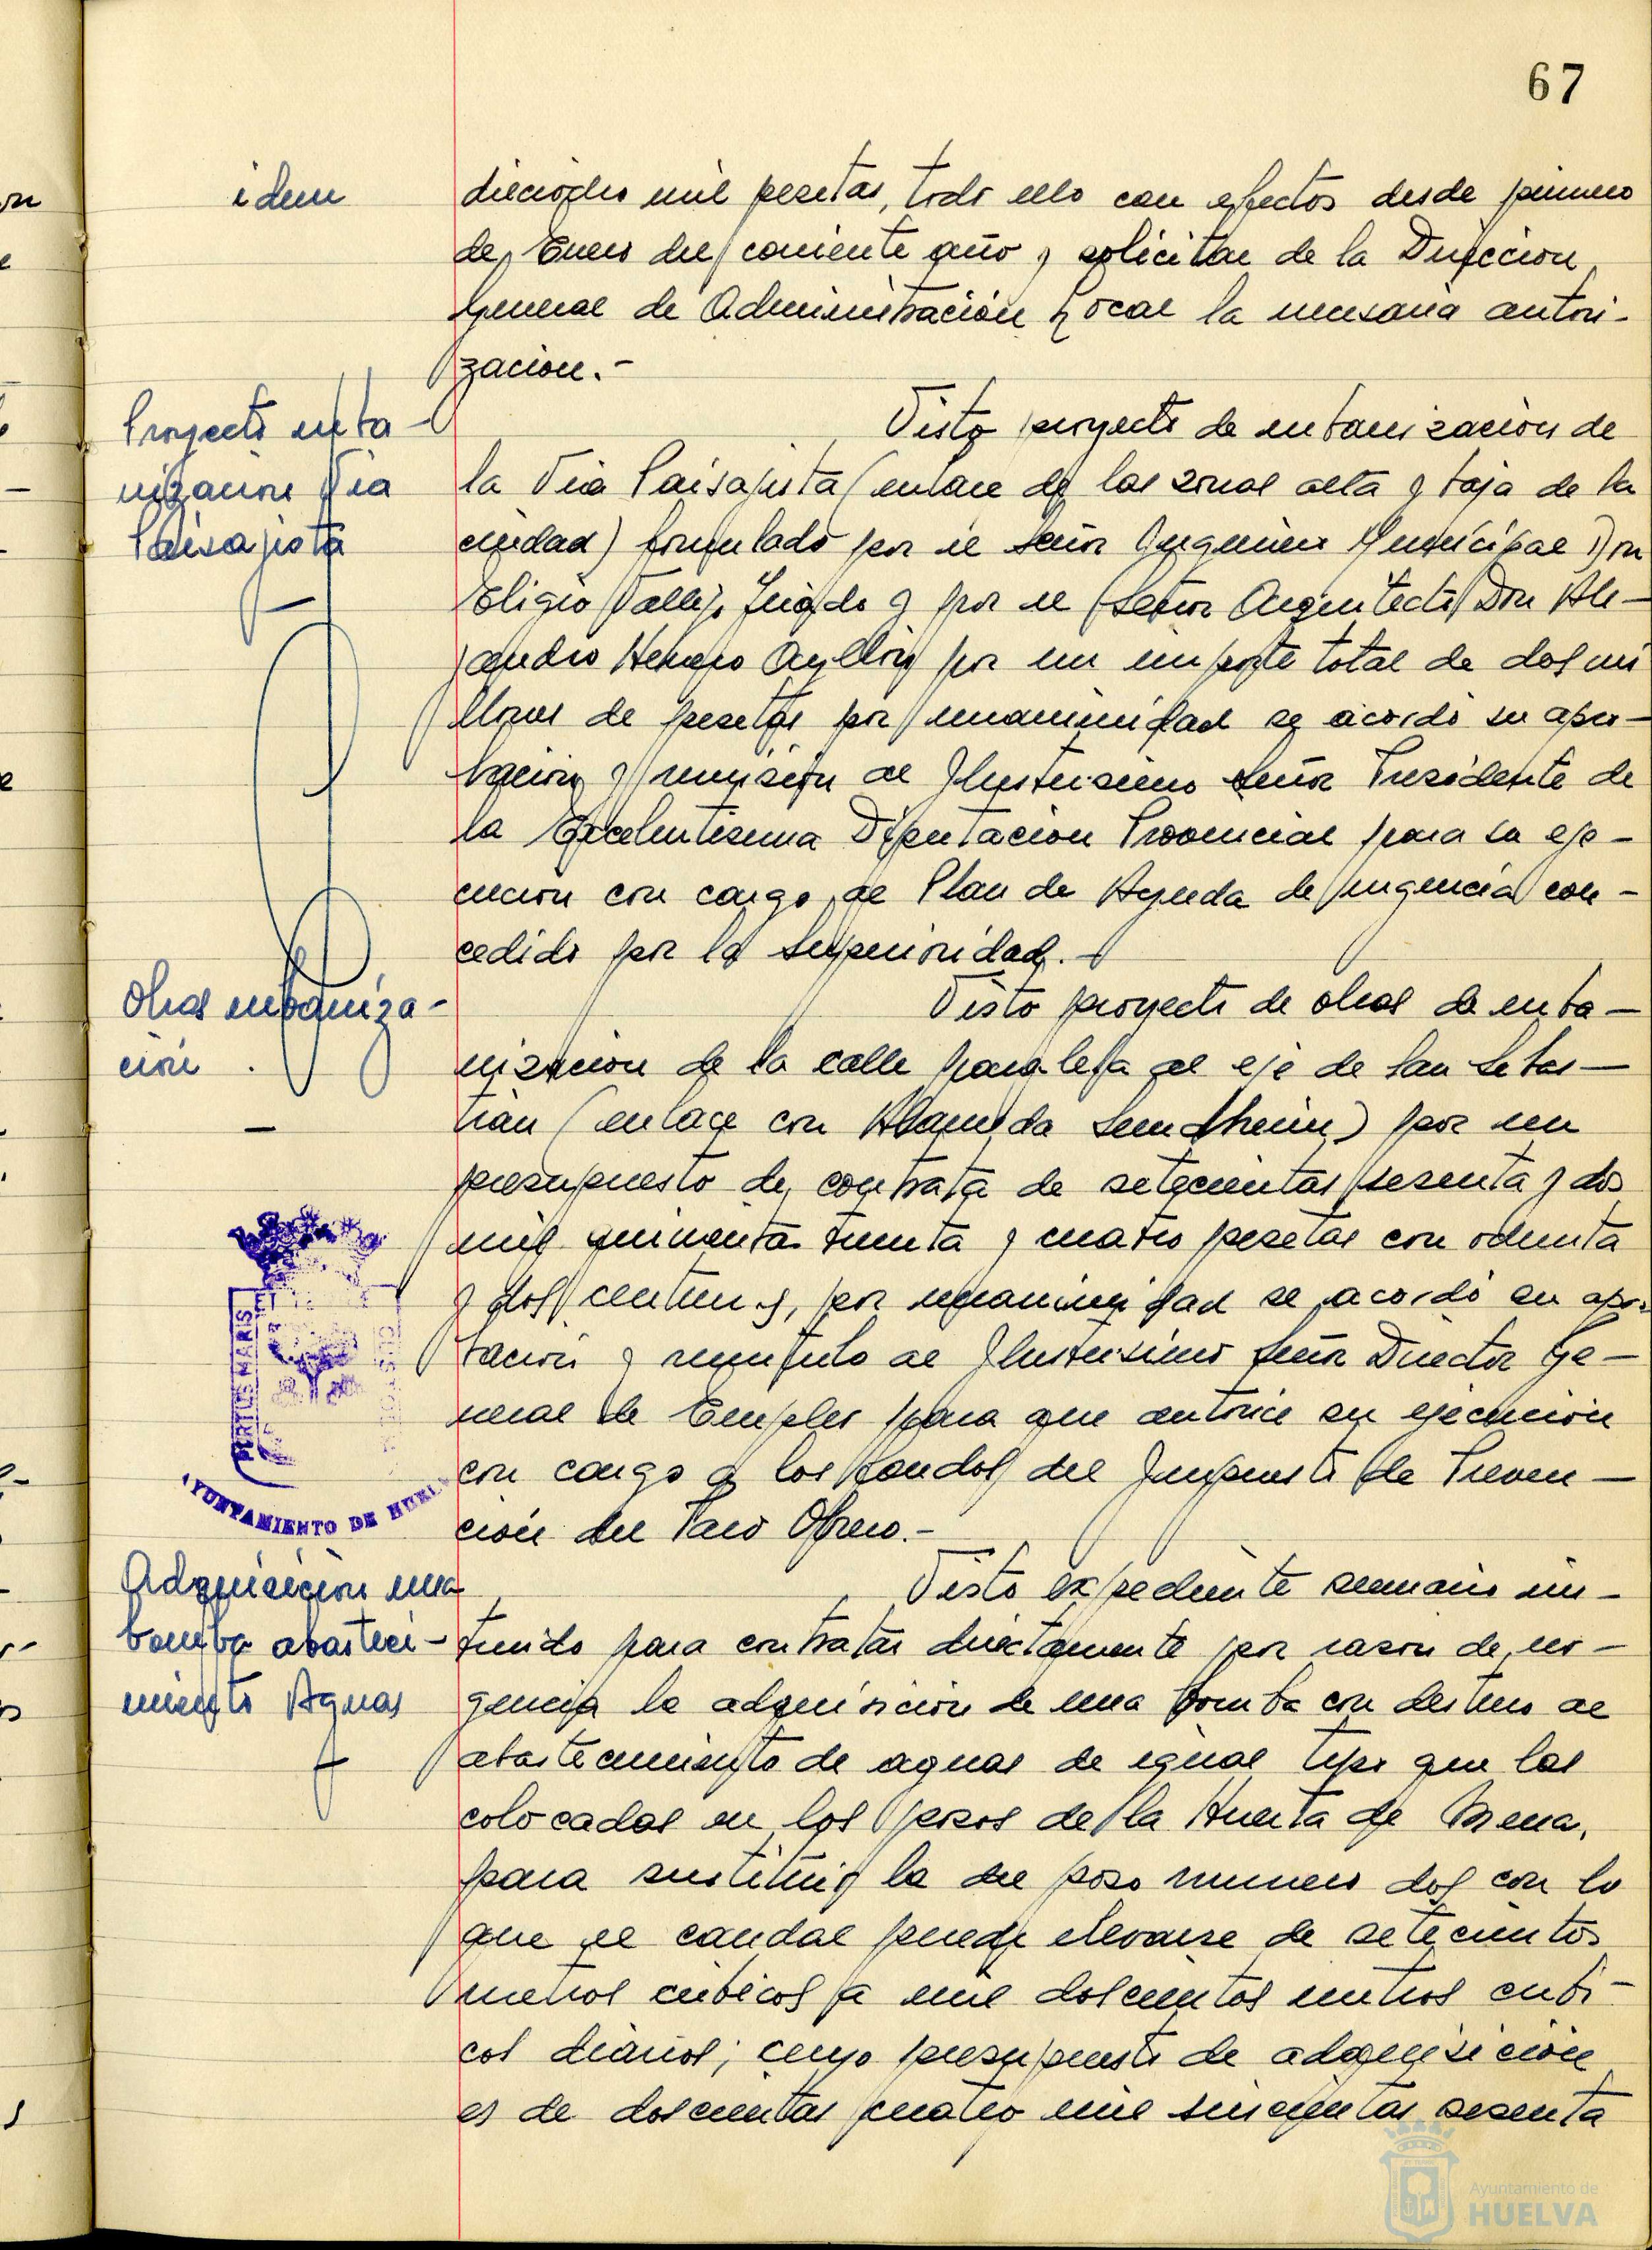 67
idem
dieciocho mil pesetas, todo ello con efectos desde primero
de Enero del corriente año y solicitar de la Dirección
General de Administración Local la necesaria autori-
zación.-
Proyecto urba-
nización Via
Paisajista
Visto proyecto de urbanización de
la Via Paisajista (enlace de las zonas alta y baja de la
ciudad) formulado por el señor Ingeniero Municipal Don
Eligio Vallejo y por el Señor Arquitecto Don Ale-
jandro Herrero Ayllón por un importe total de dos mi
llones de pesetas por unanimidad se acordó su apro-
bación y remisión al Ilustrisimo señor Presidente de
la Excelentisima Diputación Provincial para su eje-
cución con cargo al Plan de Ayuda de urgencia con-
cedido por la Superioridad.-
Obras urbaniza-
ción.
Visto proyecto de obras de urba-
nización de la calle paralela al eje de San Sebas-
tián (enlace con Alameda Sundheim) por un
presupuesto de contrata de setecientas sesenta y dos
mil quinientas treinta y cuatro pesetas con ochenta
y dos centimos, por unanimidad se acordó su apro-
bación y remitirlo al Ilustrisimo Señor Director Ge-
neral de Empleo para que autorice su ejecución
con cargo a los fondos del Impuesto de Preven-
ción del Paro Obrero.-
PORTUS MARIS
ET
AYUNTAMIENTO DE HUELVA
Adquisición una
bomba abasteci-
miento Aguas
Visto expediente sumario ins-
truido para contratar directamente por razon de ur-
gencia la adquisición de una bomba con destino al
abastecimiento de aguas de igual tipo que las
colocadas en los pozos de la Huerta de Mena,
para sustituir la del pozo numero dos con lo
que el caudal puede elevarse de setecientos
metros cúbicos a mil doscientos metros cubi-
cos diarios; cuyo presupuesto de adquisición
es de doscientas cuatro mil seiscientas sesenta
Ayuntamiento de
HUELVA